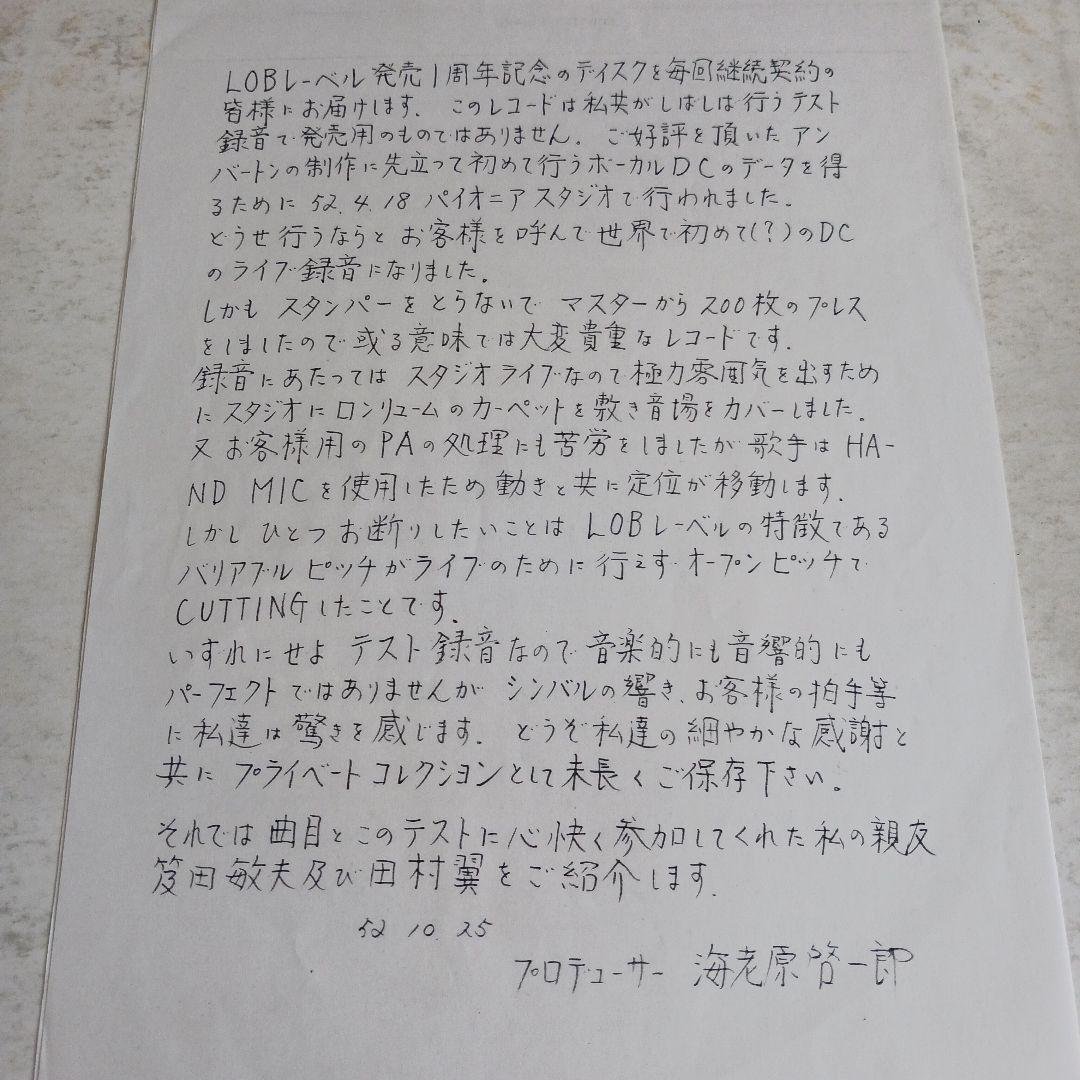 LOBレーベル発売1周年記念のディスクを毎回継続契約の
皆様にお届けします。このレコードは私共がしばしば行うテスト
録音で発売用のものではありません。ご好評を頂いたアン
バートンの制作に先立って初めて行うボーカルDCのデータを得
るために 52.4.18 パイオニアスタジオで行われました。
どうせ行うならと お客様を呼んで世界で初めて(?)のDC
のライブ録音になりました。
しかも スタンパーをとらないで マスターから200枚のプレス
をしましたので或る意味では大変貴重なレコードです。
録音にあたっては スタジオライブなので極力雰囲気を出すため
にスタジオにロンリュームのカーペットを敷き音場をカバーしました。
又お客様用のPAの処理にも苦労をしましたが歌手はHA-
ND MICを使用したため動きと共に定位が移動します。
しかしひとつお断りしたいことはLOBレーベルの特徴である
バリアブルピッチがライブのために行えず オープンピッチで
CUTTINGしたことです。
いずれにせよ テスト録音なので音楽的にも音響的にも
パーフェクトではありませんが シンバルの響き、お客様の拍手等
に私達は驚きを感じます。どうぞ私達の細やかな感謝と
共に プライベートコレクションとして末長くご保存下さい。
それでは曲目とこのテストに心快く参加してくれた私の親友
笈田敏夫及び田村翼をご紹介します。
52 10.25
プロデューサー 海老原啓一郎